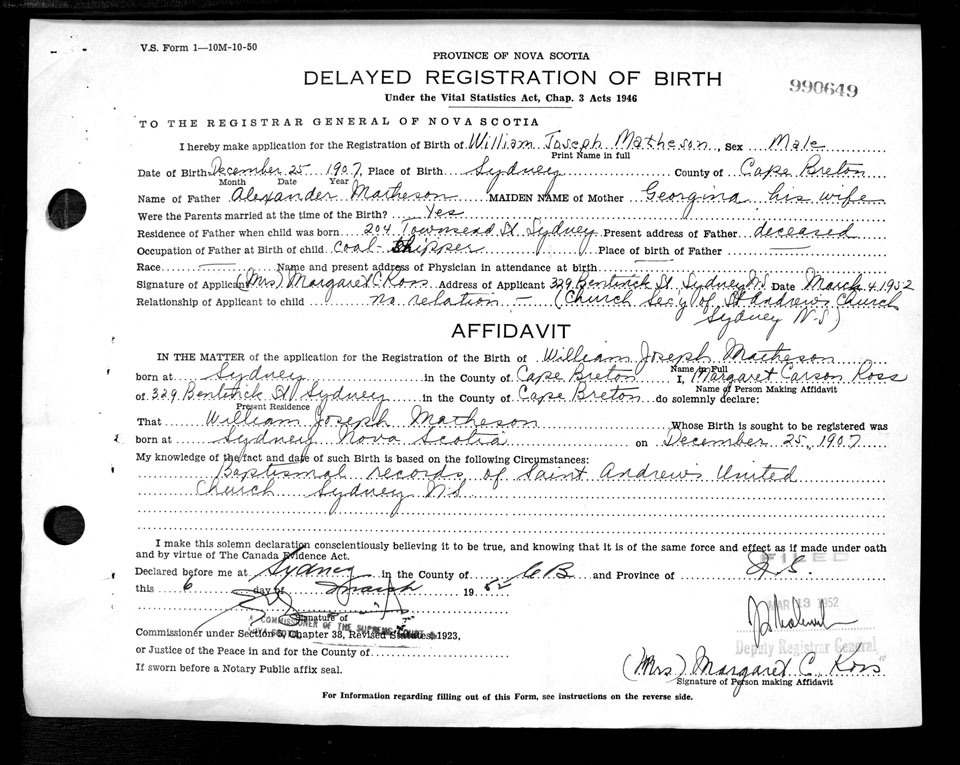 V.S. Form 1—10M-10-50
PROVINCE OF NOVA SCOTIA
DELAYED REGISTRATION OF BIRTH
990649
Under the Vital Statistics Act, Chap. 3 Acts 1946
TO THE REGISTRAR GENERAL OF NOVA SCOTIA
I hereby make application for the Registration of Birth of William Joseph Matheson, Sex Male
Print Name in full
Date of Birth December 25 1907, Place of Birth Sydney County of Cape Breton
Month Date Year
Name of Father Alexander Matheson MAIDEN NAME of Mother Georgina his wife
Were the Parents married at the time of the Birth? Yes
Residence of Father when child was born 204 Townsend St Sydney Present address of Father deceased
Occupation of Father at Birth of child coal shipper Place of birth of Father —
Race — Name and present address of Physician in attendance at birth —
Signature of Applicant (Mrs) Margaret C. Ross Address of Applicant 329 Bentinck St. Sydney N.S. Date March 4 1952
Relationship of Applicant to child no relation — (Church Sec'y of St Andrew's Church
Sydney N-S)
AFFIDAVIT
IN THE MATTER of the application for the Registration of the Birth of William Joseph Matheson
Name in Full
born at Sydney in the County of Cape Breton I, Margaret Carson Ross
Name of Person Making Affidavit
of 329 Bentinck St Sydney in the County of Cape Breton do solemnly declare:
Present Residence
That William Joseph Matheson Whose Birth is sought to be registered was
born at Sydney Nova Scotia on December 25, 1907
My knowledge of the fact and date of such Birth is based on the following Circumstances:
Baptismal records of Saint Andrew's United
Church Sydney N.S.
I make this solemn declaration conscientiously believing it to be true, and knowing that it is of the same force and effect as if made under oath
and by virtue of The Canada Evidence Act.
FILED
Declared before me at Sydney in the County of C B and Province of N.S.
this 6 day of March 1952
MAR 13 1952
Signature of
A COMMISSIONER OF THE SUPREME COURT
Commissioner under Section 5, Chapter 38, Revised Statutes 1923,
or Justice of the Peace in and for the County of
Deputy Registrar General
If sworn before a Notary Public affix seal.
(Mrs) Margaret C. Ross
Signature of Person making Affidavit
For Information regarding filling out of this Form, see instructions on the reverse side.